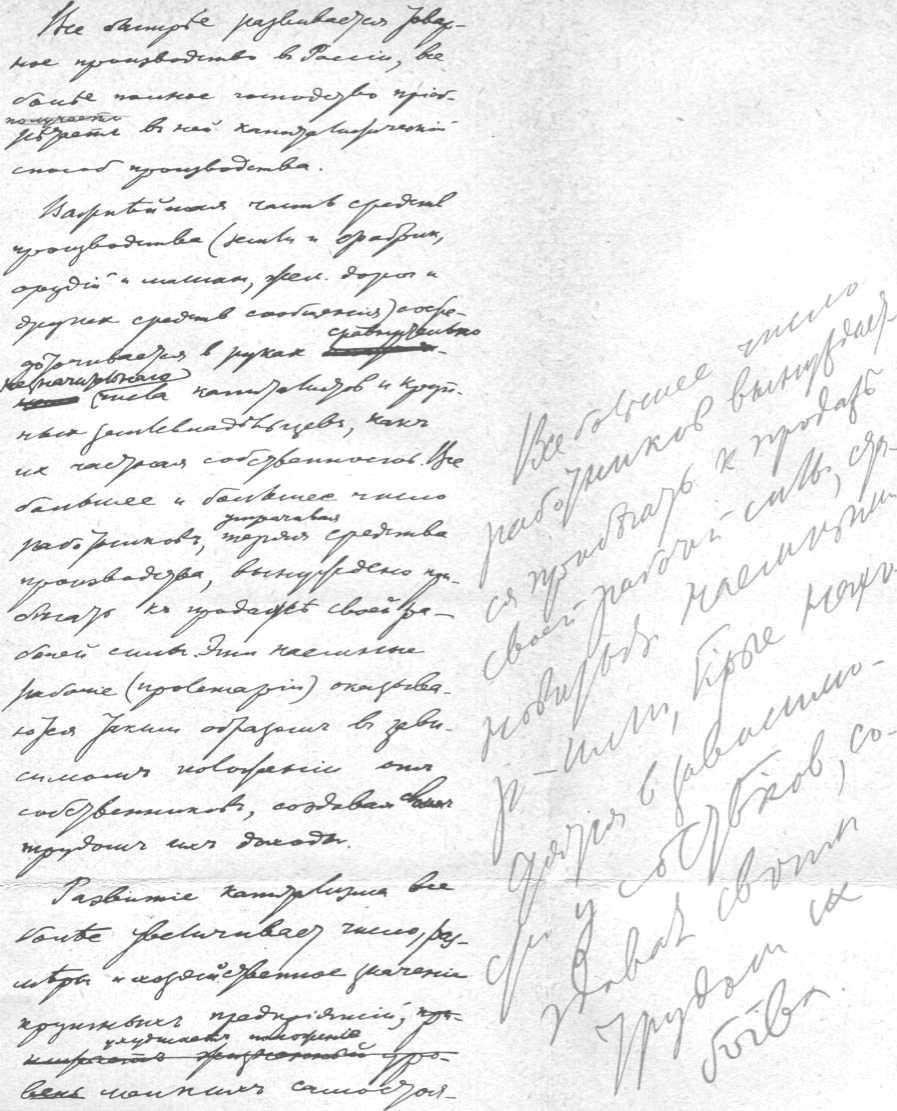 Все быстрѣе развивается товар-
ное производство в Россіи, все
болѣе полное господство пріоб-
получаетъ
рѣтаетъ в ней капиталистическій
способ производства.
Важнѣйшая часть средств
производства (земли и фабрик,
орудій и машин, жел. дорог и
других средств сообщенія) сосре-
сравнительно
доточивается в руках
незначительного
числа капиталистов и круп-
ных землевладѣльцевъ, какъ
их частная собственность. Все
большее и большее число
утрачивая
работниковъ, теряя средства
производства, вынуждено при-
бѣгать къ продажѣ своей ра-
бочей силы. Эти наемные
рабочіе (пролетаріи) оказыва-
ются таким образомъ в зави-
симомъ положеніи отъ
собственниковъ, создавая своимъ
трудомъ ихъ доходы.
Развитіе капитализма все
болѣе увеличивает число, раз-
мѣры и хозяйственное значеніе
крупныхъ предпріятій,
ухудшаетъ положеніе
жизненный уро-
вень мелкихъ самостоя-
Все большее число
работников вынуждает-
ся прибѣгать к продажѣ
своей рабочей силы, ста-
новиться наемными
р-чими, кᴏтᴏрые нахо-
дятся в зависимо-
сти у собств-ков, со-
здавая своим
трудом их
бог-ва.